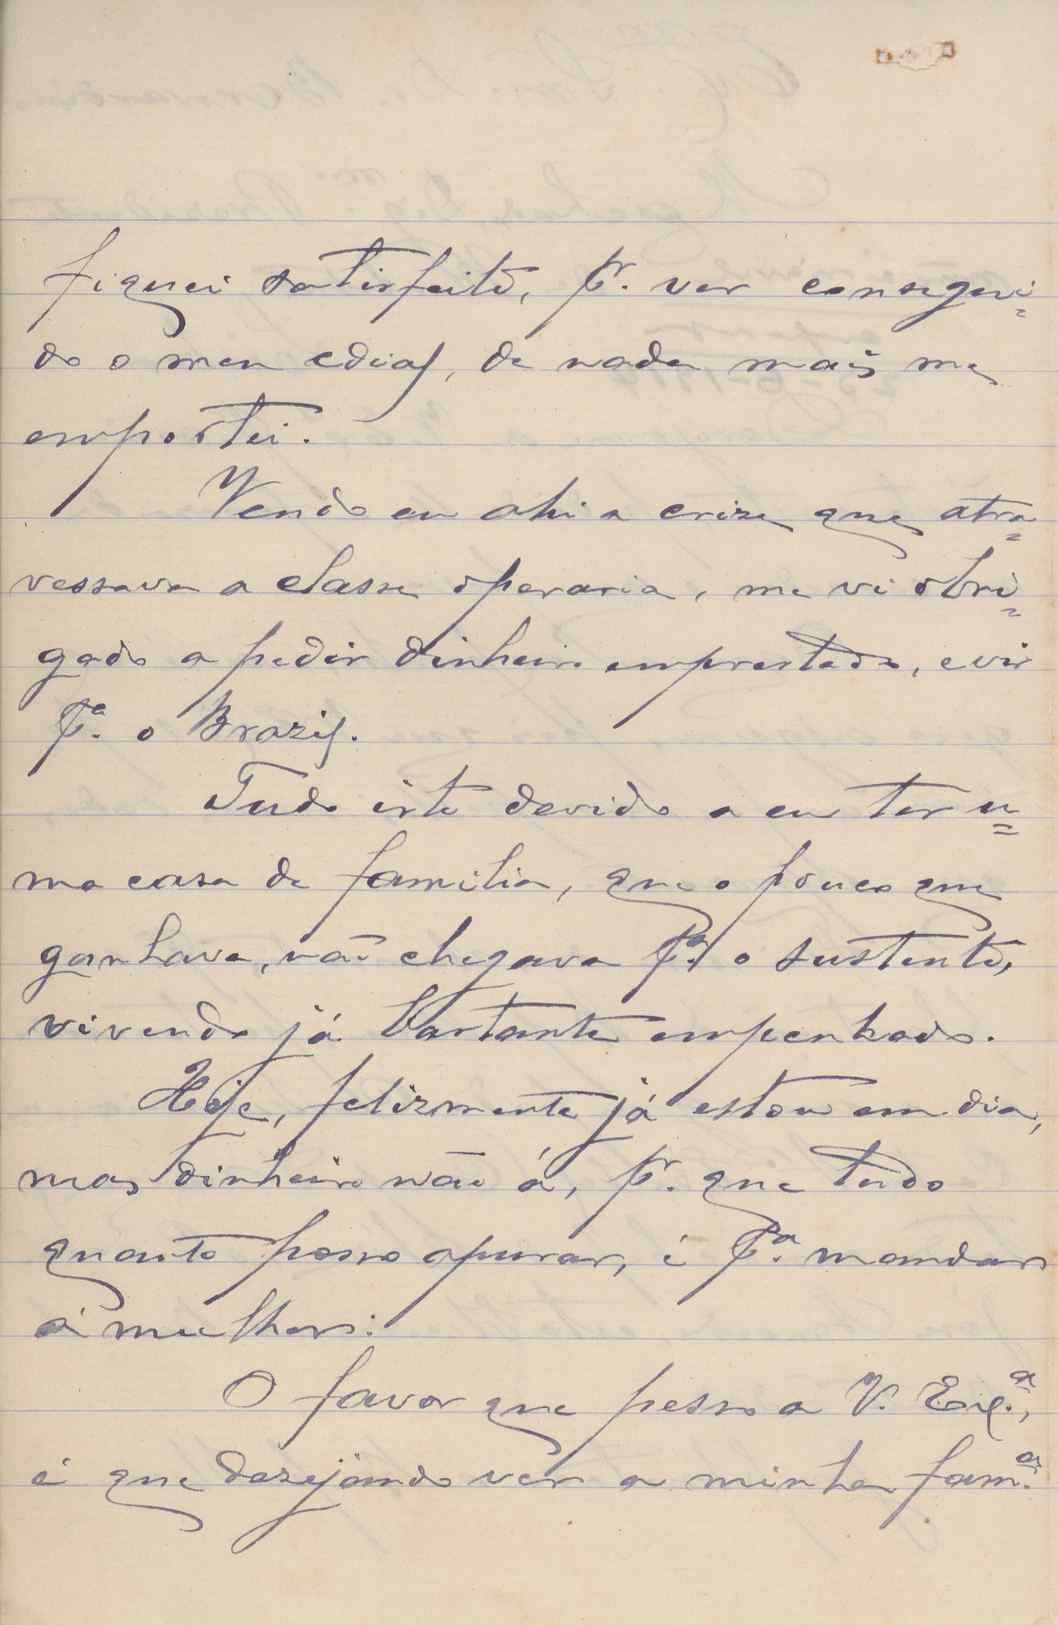 fiquei satisfeito, pr. ver consegui=
do o meu edial, de nada mais me
emportei.
Vendo eu ahi a crize que atra=
vessava a classe operaria, me vi obri=
gado a pedir dinheiro emprestado, e vir
Pa. o Brazil.
Tudo isto devido a eu ter u=
ma casa de familia, que o pouco que
ganhava, não chegava Pa. o sustento,
vivendo já bastante empenhado.
Hoje, felizmente já estou em dia,
mas dinheiro não á, pr. que tudo
quanto posso apurar, é Pa. mandar
á mulher.
O favor que pesso a V. Exa.,
é que dezejando ver a minha fama.